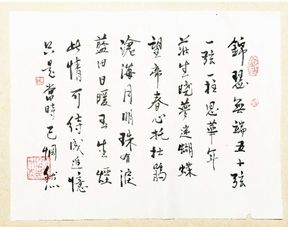 錦瑟無端五十弦
一弦一柱思華年
莊生曉夢迷蝴蝶
望帝春心托杜鵑
滄海月明珠有淚
藍田日暖玉生煙
此情可待成追憶
只是當時已惘然